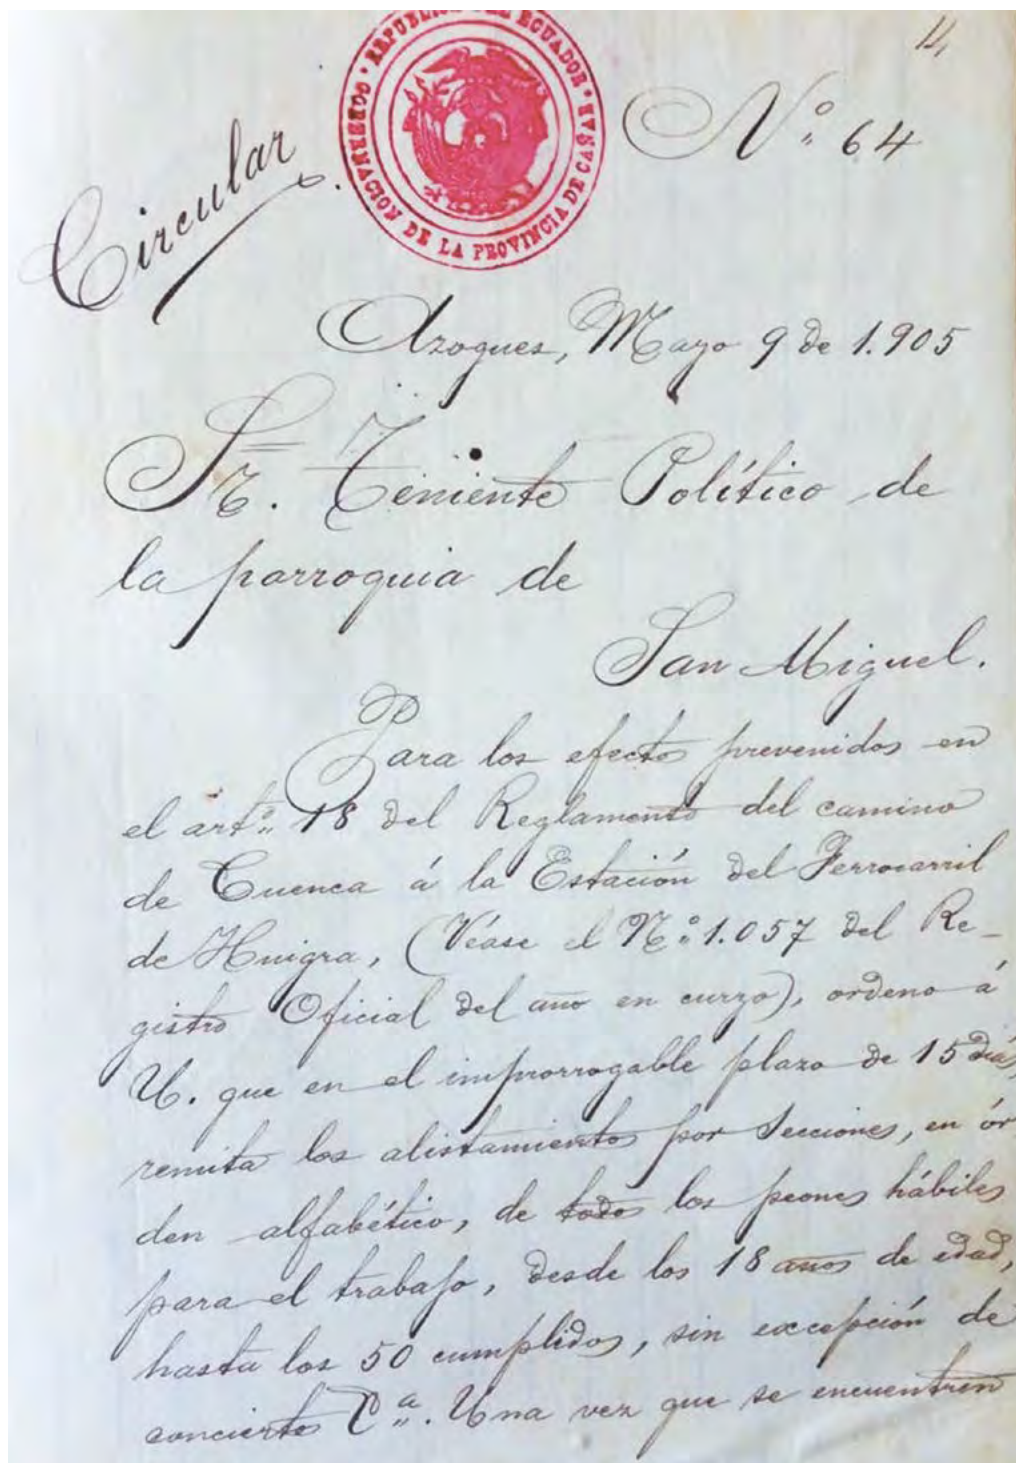 14
REPUBLICA DEL ECUADOR · GOBERNACION DE LA PROVINCIA DE CAÑAR ·
Nº 64
Circular
Azogues, Mayo 9 de 1.905
Sr. Teniente Político de
la parroquia de
San Miguel.
Para los efectos prevenidos en
el artº 18 del Reglamento del camino
de Cuenca á la Estación del Ferrocarril
de Huigra, (Véase el Nº 1.057 del Re-
gistro Oficial del año en curzo), ordeno á
U. que en el improrrogable plazo de 15 días,
remita los alistamientos por Secciones, en ór
den alfabético, de todos los peones hábiles
para el trabajo, desde los 18 años de edad,
hasta los 50 cumplidos, sin excepción de
conciertos ª. Una vez que se encuentren